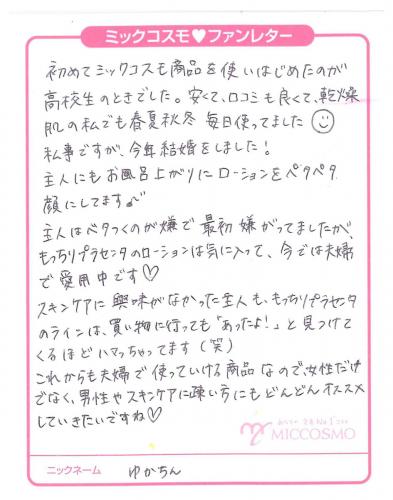 ミックコスモ♥ファンレター
初めてミックコスモ商品を使いはじめたのが
高校生のときでした。安くて、口コミも良くて、乾燥
肌の私でも春夏秋冬 毎日使ってました☺
私事ですが、今年結婚をしました!
主人にもお風呂上がりにローションをペタペタ
顔にしてます♪
主人はベタつくのが嫌で最初嫌がってましたが、
もっちりプラセンタのローションは気に入って、今では夫婦
で愛用中です♡
スキンケアに興味がなかった主人も、もっちりプラセンタ
のラインは、買い物に行っても「あったよ!」と見つけて
くるほどハマっちゃってます(笑)
これからも夫婦で使っていける商品なので、女性だけ
でなく、男性やスキンケアに疎い方にもどんどんオススメ
していきたいですね♡
MICCOSMO
ニックネーム ゆかちん